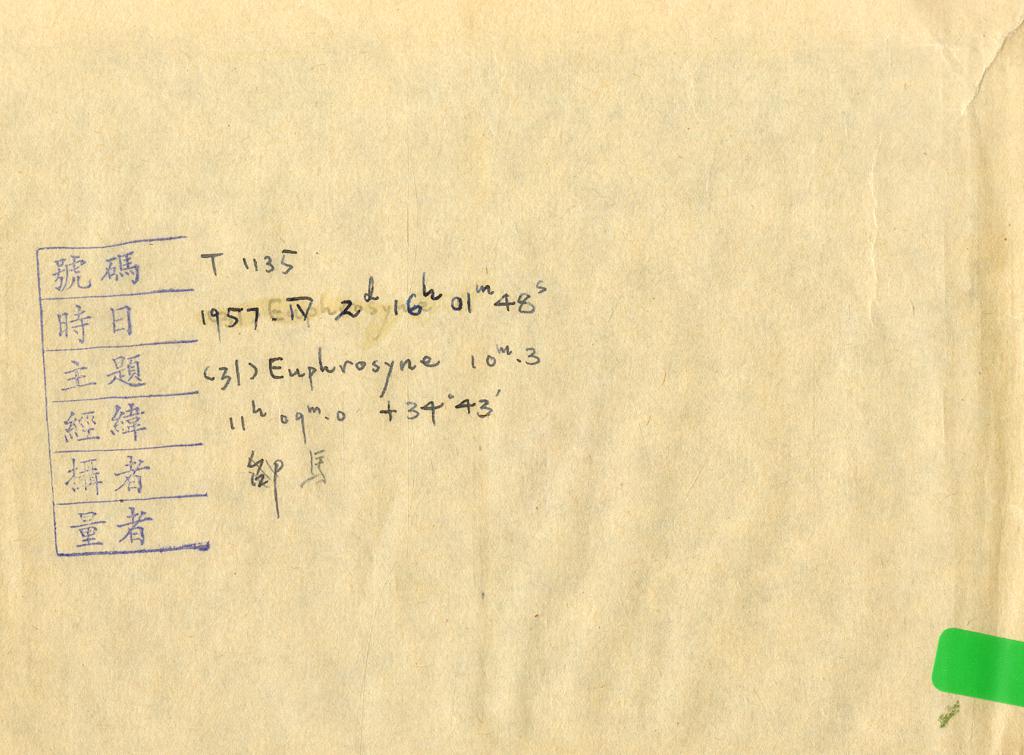 號碼 T 1135
時日 1957-IV 2ᵈ 16ʰ 01ᵐ 48ˢ
主題 (31) Euphrosyne 10ᵐ.3
經緯 11ʰ 09ᵐ.0 +34°43′
攝者 馬
量者